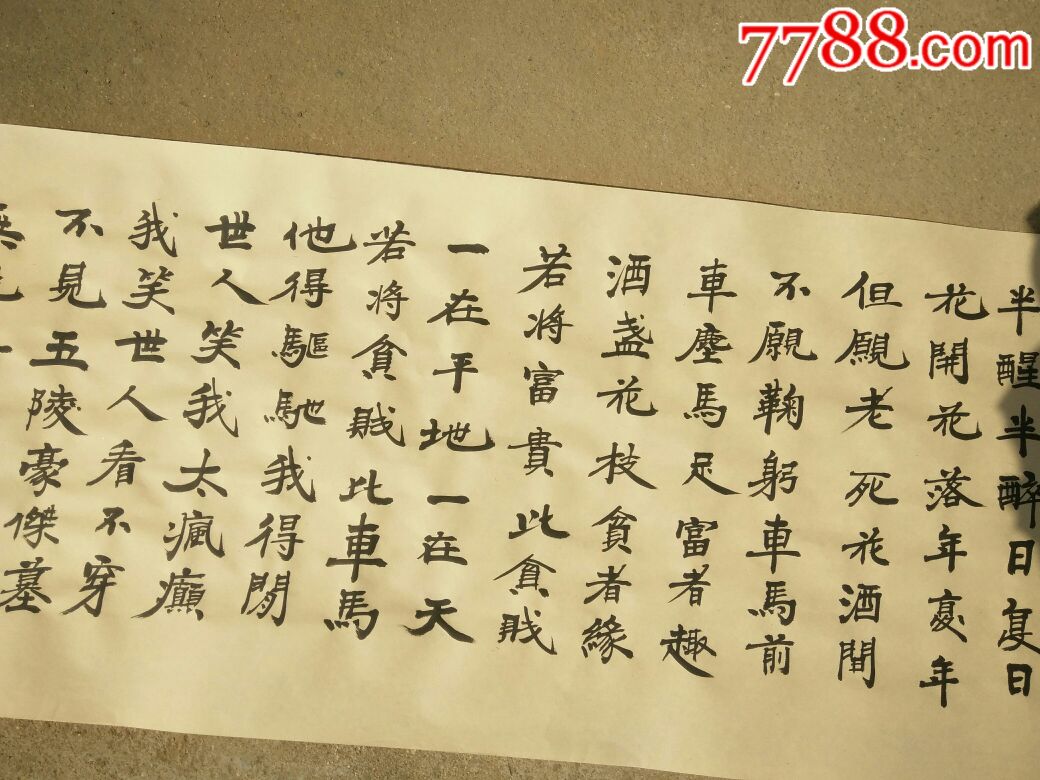 7788.com
半醒半醉日复日
花開花落年复年
但願老死花酒間
不願鞠躬車馬前
車塵馬足富者趣
酒盞花枝貧者緣
若将富貴比貧賎
一在平地一在天
若将貧賎比車馬
他得驅馳我得閒
世人笑我太瘋癲
我笑世人看不穿
不見五陵豪傑墓